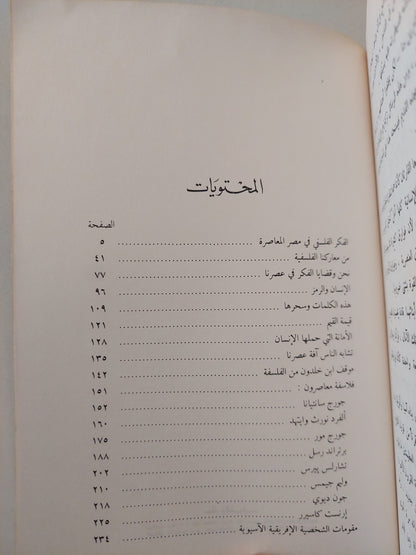 المحتويات
الصفحة
الفكر الفلسفي في مصر المعاصرة ٥
من معاركنا الفلسفية ٤١
نحن وقضايا الفكر في عصرنا ٧٧
الإنسان والرمز ٩٦
هذه الكلمات وسحرها ١٠٩
قيمة القيم ١٢١
الأمانة التي حملها الإنسان ١٢٨
تشابه الناس آفة عصرنا ١٣٥
موقف ابن خلدون من الفلسفة ١٤٢
فلاسفة معاصرون : ١٥١
جورج سانتيانا ١٥٢
ألفرد نورث وايتهد ١٦٠
جورج مور ١٧٥
برتراند رسل ١٨٨
تشارلس پيرس ٢٠٢
وليم جيمس ٢١٠
جون ديوي ٢١٨
إرنست كاسيرر ٢٢٥
مقومات الشخصية الإفريقية الآسيوية ٢٣٤